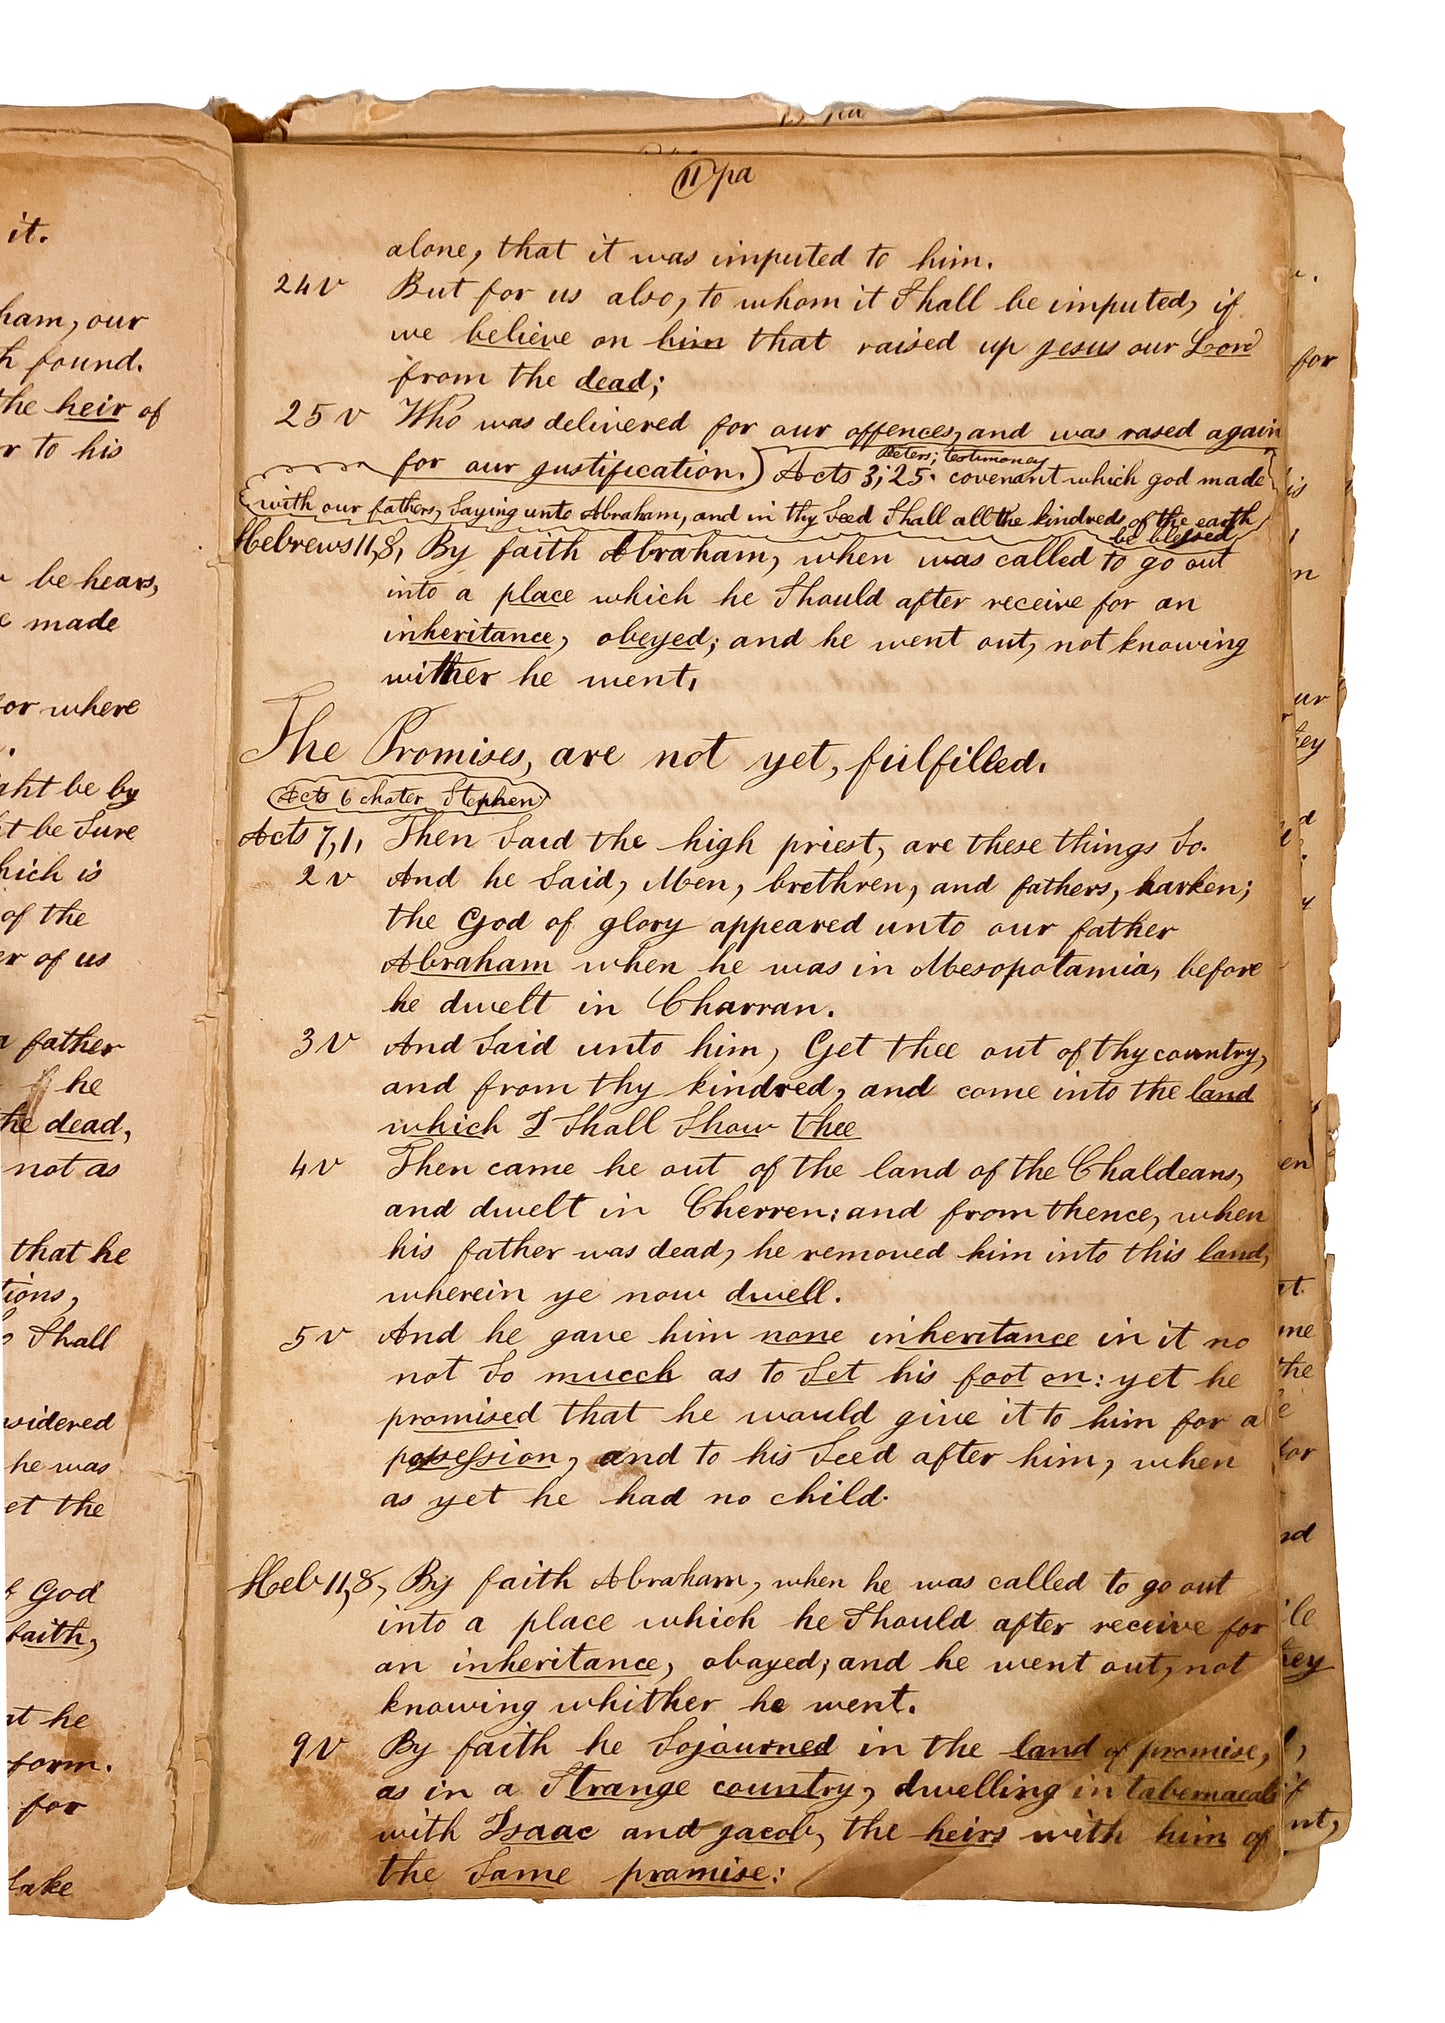 it.
ham, our
h found.
the heir of
or to his
be hears,
made
for where
ght be by
ht be Sure
hich is
of the
er of us
father
he
the dead,
not as
that he
tions,
Shall
nsidered
he was
et the
God
faith,
at he
form.
for
Sake
11 pa
alone, that it was imputed to him.
24 v But for us also, to whom it Shall be imputed, if
we believe on him that raised up jesus our Lord
from the dead;
25 v Who was delivered for our offences, and was rased again
for our justification.) Acts 3; 25. covenant which god made
Peters; testimoney
with our fathers, Saying unto Abraham, and in thy Seed Shall all the kindreds of the earth
be blessed
Hebrews 11, 8, By faith Abraham, when was called to go out
into a place which he Should after receive for an
inheritance, obeyed; and he went out, not knowing
wither he went,
The Promises, are not yet, fulfilled.
Acts 6 chater Stephen
Acts 7, 1, Then Said the high priest, are these things So.
2 v And he Said, Men, brethren, and fathers, harken;
the God of glory appeared unto our father
Abraham when he was in Mesopotamia, before
he dwelt in Charran.
3 v And Said unto him, Get thee out of thy country,
and from thy kindred, and come into the land
which I Shall Show thee
4 v Then came he out of the land of the Chaldeans,
and dwelt in Cherren: and from thence, when
his father was dead, he removed him into this land,
wherein ye now dwell.
5 v And he gave him none inheritance in it no
not So mucch as to Set his foot on: yet he
promised that he would give it to him for a
possession, and to his Seed after him, when
as yet he had no child.
Heb 11, 8, By faith Abraham, when he was called to go out
into a place which he Should after receive for
an inheritance, obayed; and he went out, not
knowing whither he went.
9 v By faith he Sojourned in the land of promise,
as in a Strange country, dwelling in tabernacals
with Isaac and jacob, the heirs with him of
the Same promise:
for
is
n
ur
hey
en
me
the
for
nd
ile
hey
if
nt,